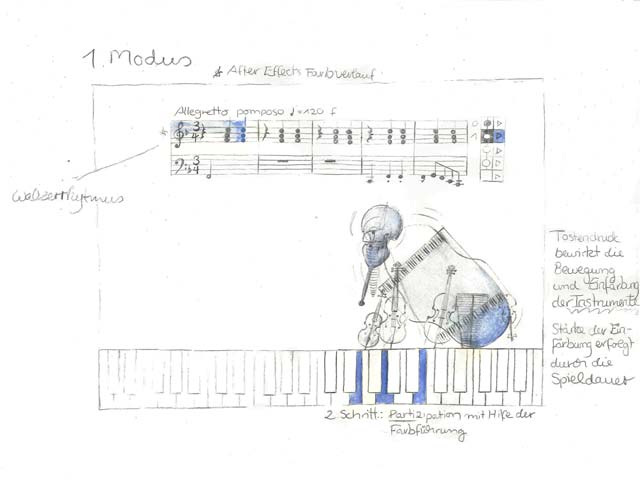 1. Modus
After Effects Farbverlauf
Allegretto pomposo ♩=120 f
3
4
3
4
Walzerrhytmus
Tastendruck
bewirkt die
Bewegung
und Einfärbung
der Instrumente
Stärke der Ein-
färbung erfolgt
durch die
Spieldauer
2 Schritt: Partizipation mit Hilfe der
Farbführung